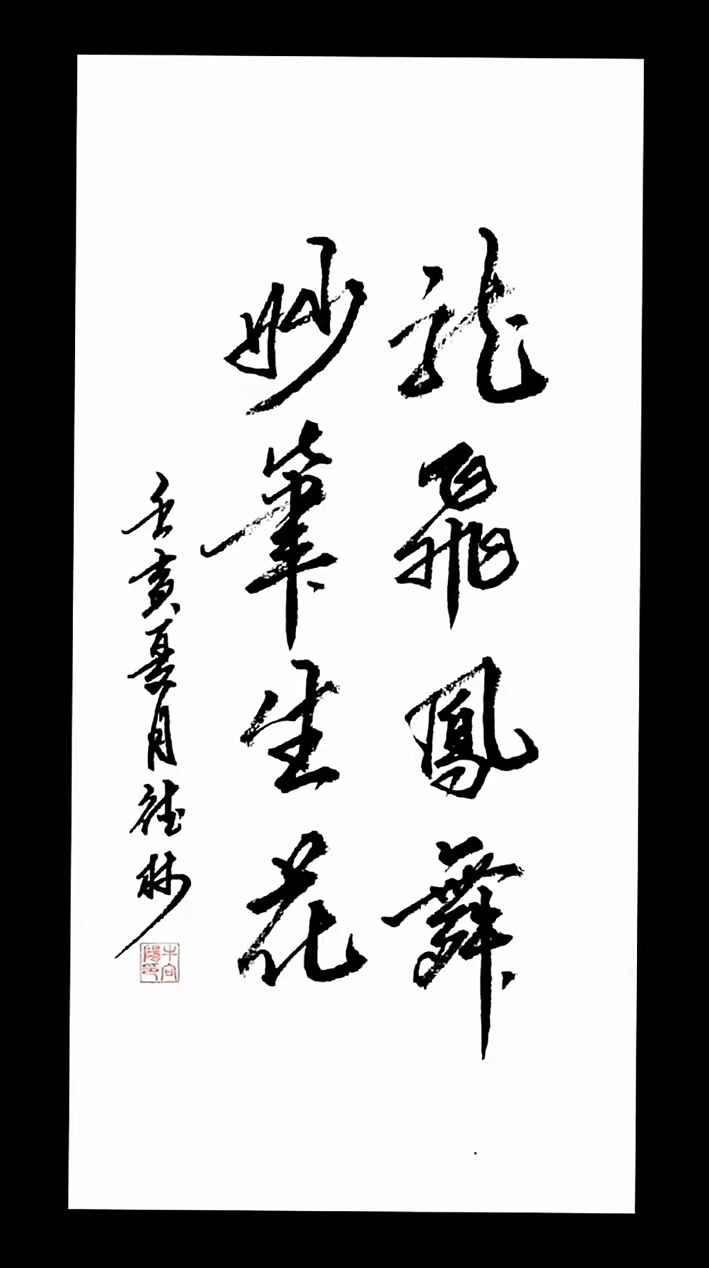 龍飛鳳舞
妙筆生花
壬寅夏月德林